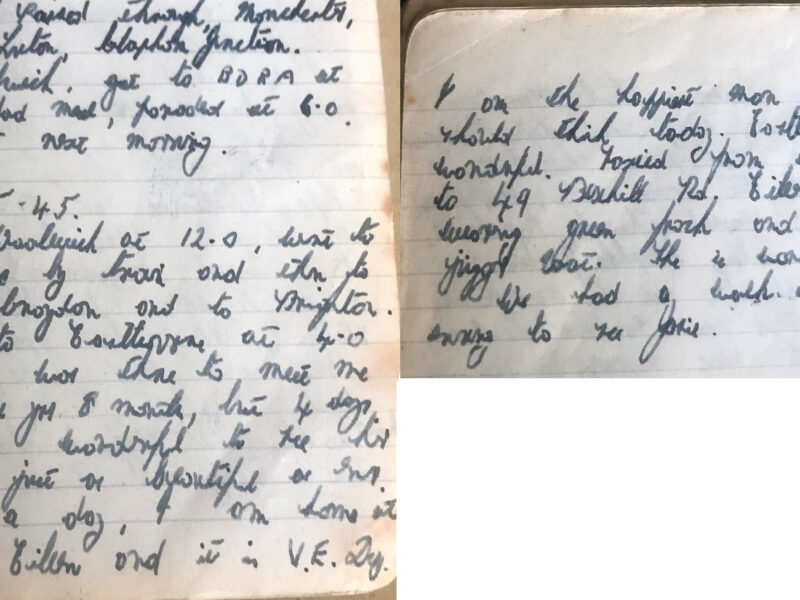 Passed through, Manchester,
Luton, Clapham Junction.
get to BDRA at
had meal, paraded at 6.0.
next morning.
-45.
Woolwich at 12.0, went to
by train and then to
Croydon and to Brighton.
to Eastbourne at 4-0
was there to meet me
yrs 8 months, but 4 days,
wonderful to see her
just as beautiful as ever.
a day, I am home at
Eileen and it is V.E. Day.
I am the happiest man
should think today.
wonderful. Taxied from
to 49 Bexhill Rd,
wearing green frock and
jigger coat. She is
We had a walk.
evening to see Josie.